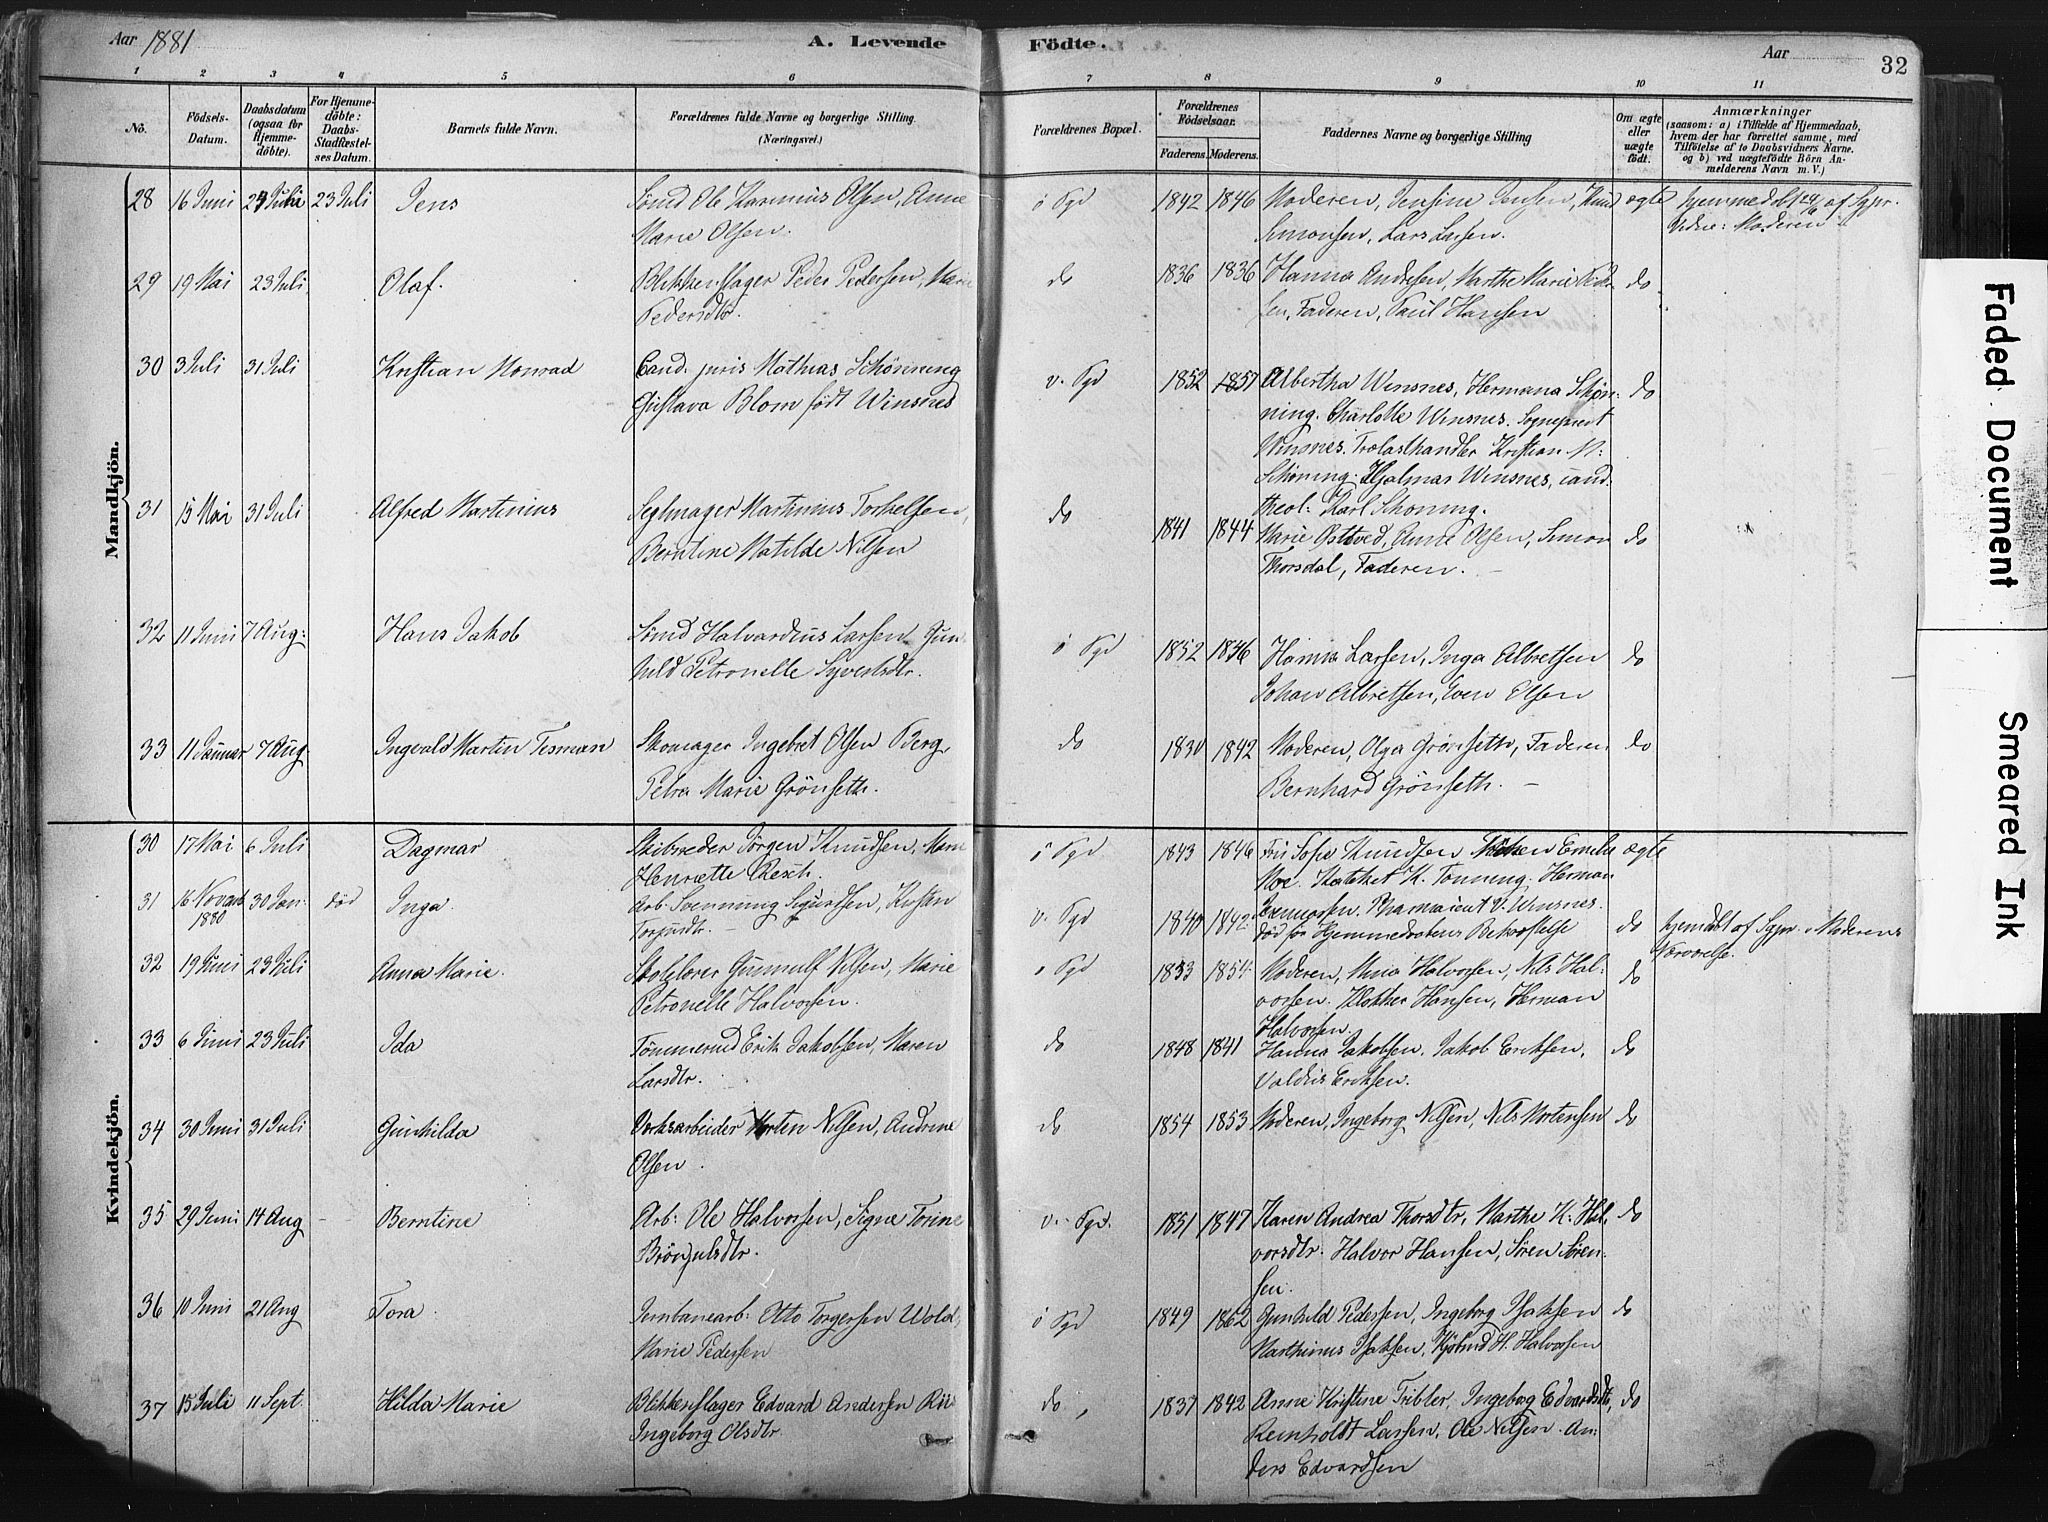 Aar 1881
A. Levende Födte.
Aar
32
1 2 3 4 5 6 7 8 9 10 11
No.
Födsels-Datum.
Daabsdatum (ogsaa for Hjemme-döbte).
For Hjemme-döbte: Daabs-Stadfæstel-ses Datum.
Barnets fulde Navn.
Forældrenes fulde Navne og borgerlige Stilling. (Næringsvei.)
Forældrenes Bopæl.
Forældrenes Födselsaar.
Faderens. Moderens.
Faddernes Navne og borgerlige Stilling
Om ægte eller uægte födt.
Anmærkninger
(saasom: a) i Tilfælde af Hjemmedaab, hvem der har forrettet samme, med Tilföielse af to Daabsvidners Navne. og b) ved uægtefödte Börn An-melderens Navn m. V.)
Mandkjön.
28 16 Juni 23 Juli Jens Ole Olsen, Anne ö Sgd 1842 1846 Moderen, Jensine Jensen, Knud ægte
Marie Olsen. Simonsen, Lars Larsen. Moderen
29 19 Mai 23 Juli Olaf. Blikkenslager Peder Pedersen, Marie do 1836 1836 Hanna Andresen, Marthe Marie Peder do
Pedersdtr. sen, Faderen, Paul Hansen
30 3 Juli 31 Juli Kristian Konrad Cand. juris Mathias Schønning v. Sgd 1852 1857 Albertha Winsnes, Hermana Schøn- do
Gustava Blom født Winsnes ning. Charlotte Winsnes. Sogneprest
Winsnes. Trælasthandler Kristian M:
Schøning. Hjalmar Winsnes, cand.
theol. Karl Schøning.
31 15 Mai 31 Juli Alfred Martinius Seglmager Martinius Torkelsen, do 1841 1844 Marie Østtved, Anne Olsen, Simon do
Berntine Matilde Nilsen Thorsdal, Faderen.
32 11 Juni 7 Aug: Hans Jakob Halvardius Larsen Gun- ö Sgd 1852 Hanna Larsen, Inga Albretsen do
hild Petronelle Syvertsdtr. Johan Albretsen, Even Olsen
33 11 Januar 7 Aug. Ingvald Martin Tesman Skomager Ingebret Olsen Berg, do 1830 1842 Moderen, Olga Grönseth, Faderen do
Petra Marie Grönseth. Bernhard Grönseth.
Kvindekjön.
30 17 Mai 6 Juli Dagmar Skibsreder Jörgen Knudsen, ö Sgd 1843 1846 Sofie Knudsen Emelie ægte
Henriette Resch. Moe. K. Tonning. Herman
31 16 Novemb 1880 30 Jan. död Inga. Arb. Svenning Sigurdsen, Kristin v. Sgd 1840 1842 V. Winsnes. do
död før Hjemmedaabens Bekræftelse
hjemdöbt af Moderens Nærværelse.
32 19 Juni 23 Juli Anna Marie. Gunnulf Nilsen, Marie ö Sgd 1833 1854 Moderen, Mina Halvorsen, Nils Hal- do
Petronelle Halvorsen. vorsen. Klokker Hansen, Herman
Halvorsen.
33 6 Juni 23 Juli Ida Tömmermd Erik Jakobsen, Maren do 1848 1841 Hanna Jakobsen. Jakob Eriksen, do
Larsdtr. Valdius Eriksen.
34 30 Juni 31 Juli Gunhilda Verksarbeider Morten Nilsen, Andrine do 1854 1853 Moderen, Ingeborg Nilsen, Nils Mortensen do
Olsen.
35 29 Juni 14 Aug Berntine Arb: Ole Halvorsen, Signe Torine v. Sgd. 1851 1847 Karen Andrea Thorsdtr, Marthe K. Hal- do
Brönjulsdtr. vorsdtr. Halvor Hansen, Sören Sören-
sen.
36 10 Juni 21 Aug Tora. Jernbanearb: Otto Torgersen Wold, ö Sgd 1849 1862 Gunhild Pedersen, Ingeborg Isaksen do
Marie Pedersen Marthinus Isaksen, H. Halvorsen
37 15 Juli 11 Sept. Hilda Marie Blikkenslager Edvard Andersen do 1837 1842 Anne Kristine Tribler, Ingeborg Edvardsdtr, do
Ingeborg Olsdtr. Reinholdt Larsen, Ole Nilsen. An-
ders Edvardsen
Faded Document
Smeared Ink